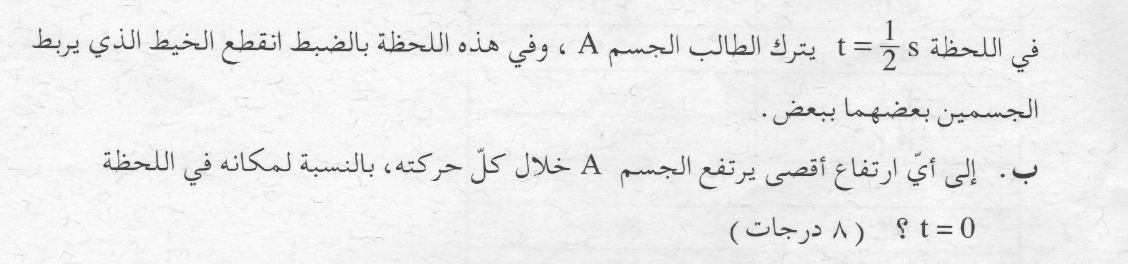 في اللحظة t = 1/2 s يترك الطالب الجسم A ، وفي هذه اللحظة بالضبط انقطع الخيط الذي يربط
الجسمين بعضهما ببعض.
ب. إلى أيّ ارتفاع أقصى يرتفع الجسم A خلال كلّ حركته، بالنسبة لمكانه في اللحظة
t = 0 ؟ (٨ درجات)